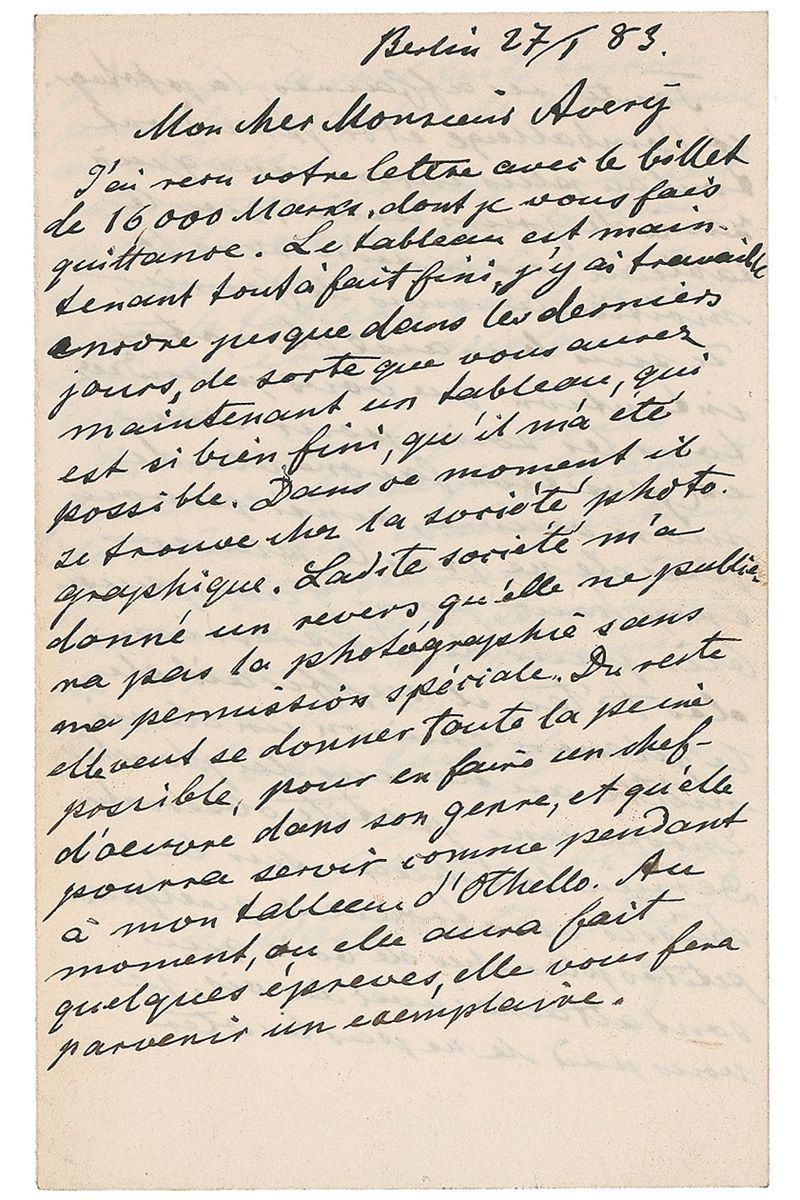 Berlin 27/1 83.
Mon cher Monsieur Avery
J'ai reçu votre lettre avec le billet
de 16 000 Marks, dont je vous fais
quittance. Le tableau est main-
tenant tout à fait fini, j'y ai travaillé
encore jusque dans les derniers
jours, de sorte que vous aurez
maintenant un tableau, qui
est si bien fini, qu'il m'a été
possible. Dans ce moment il
se trouve chez la société photo-
graphique. Ladite société m'a
donné un revers qu'elle ne publie-
ra pas la photographie sans
ma permission spéciale. Du reste
elle veut se donner toute la peine
possible, pour en faire un chef-
d'oeuvre dans son genre, et qu'elle
pourra servir comme pendant
à mon tableau d'Othello. Au
moment, ou elle aura fait
quelques épreves, elle vous fera
parvenir un exemplaire.